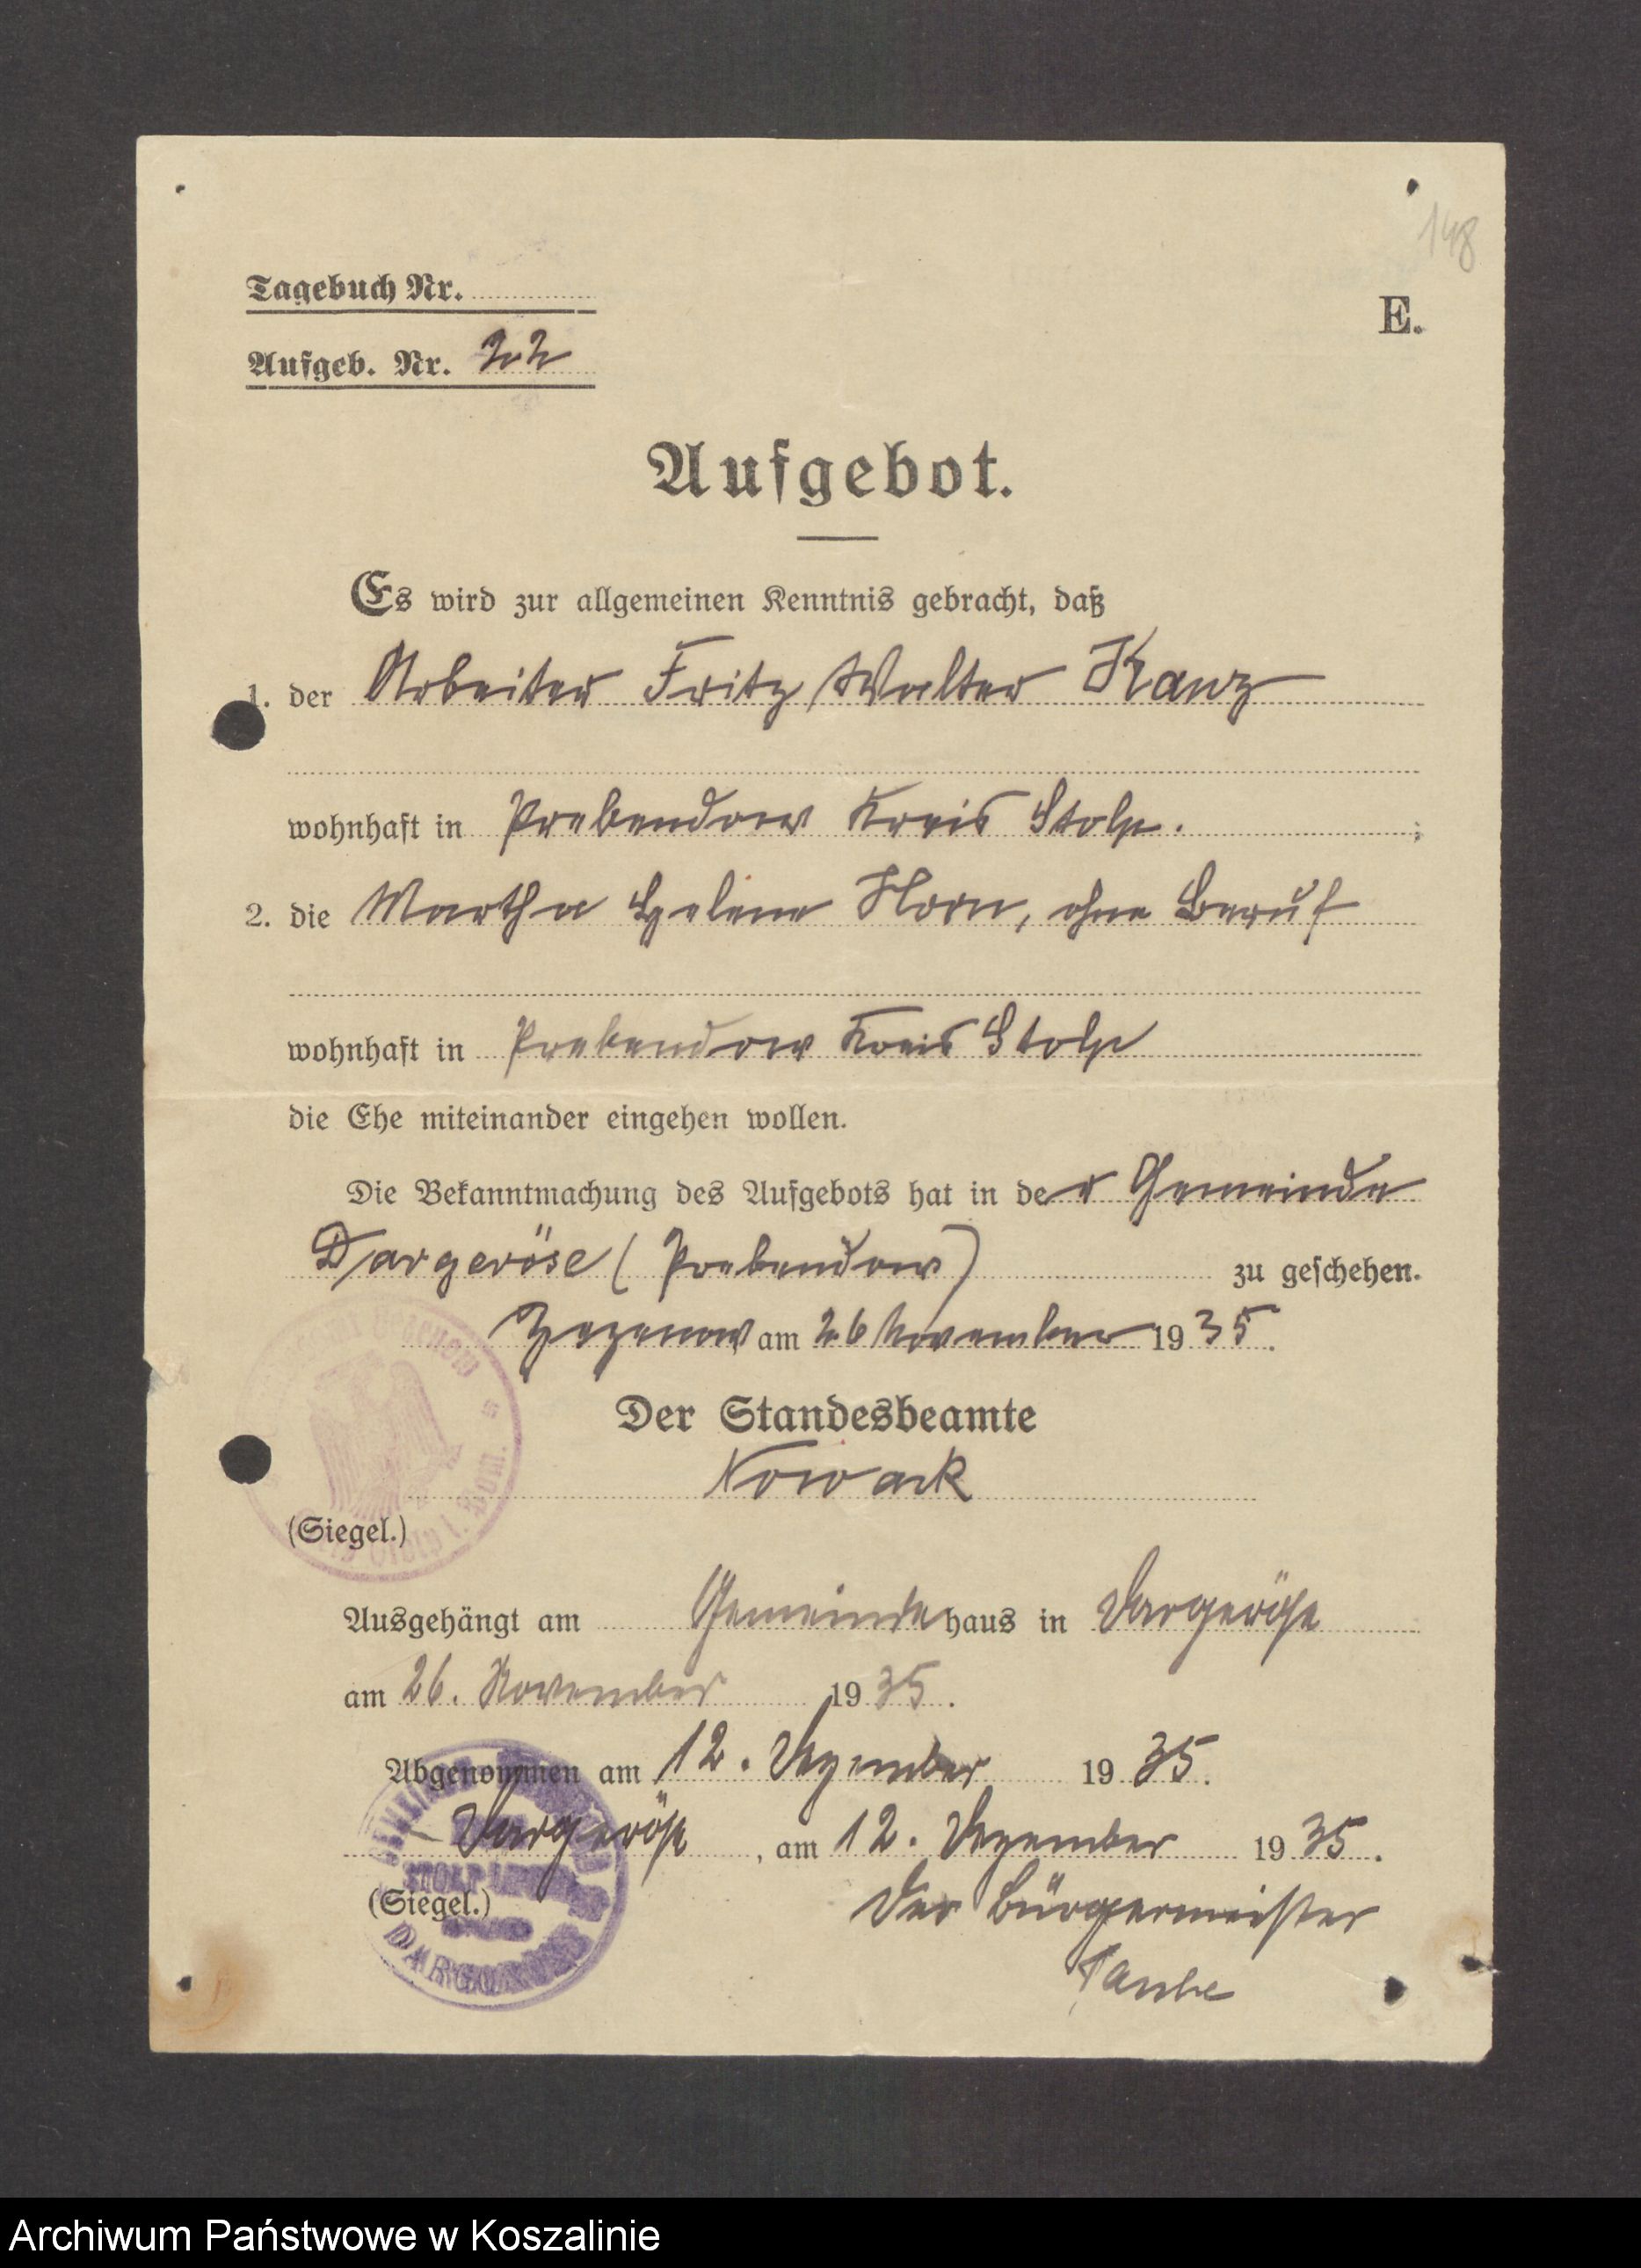 148
Tagebuch Nr.
E.
Aufgeb. Nr. 22
Aufgebot.
Es wird zur allgemeinen Kenntnis gebracht, daß
1. der Arbeiter Fritz Walter Kanz
wohnhaft in Prebendow Kreis Stolp. ;
2. die Martha Helene Horn, ohne Beruf
wohnhaft in Prebendow Kreis Stolp
die Ehe miteinander eingehen wollen.
Die Bekanntmachung des Aufgebots hat in der Gemeinde
Dargeröse (Prebendow) zu geschehen.
Zezenow am 26 November 1935.
Der Standesbeamte
Nowack
(Siegel.)
Stolp i. Pom.
Ausgehängt am Gemeindehaus in Dargeröse
am 26. November 1935.
Abgenommen am 12. Dezember 1935.
Dargeröse, am 12. Dezember 1935.
(Siegel.)
Der Bürgermeister
Archiwum Państwowe w Koszalinie